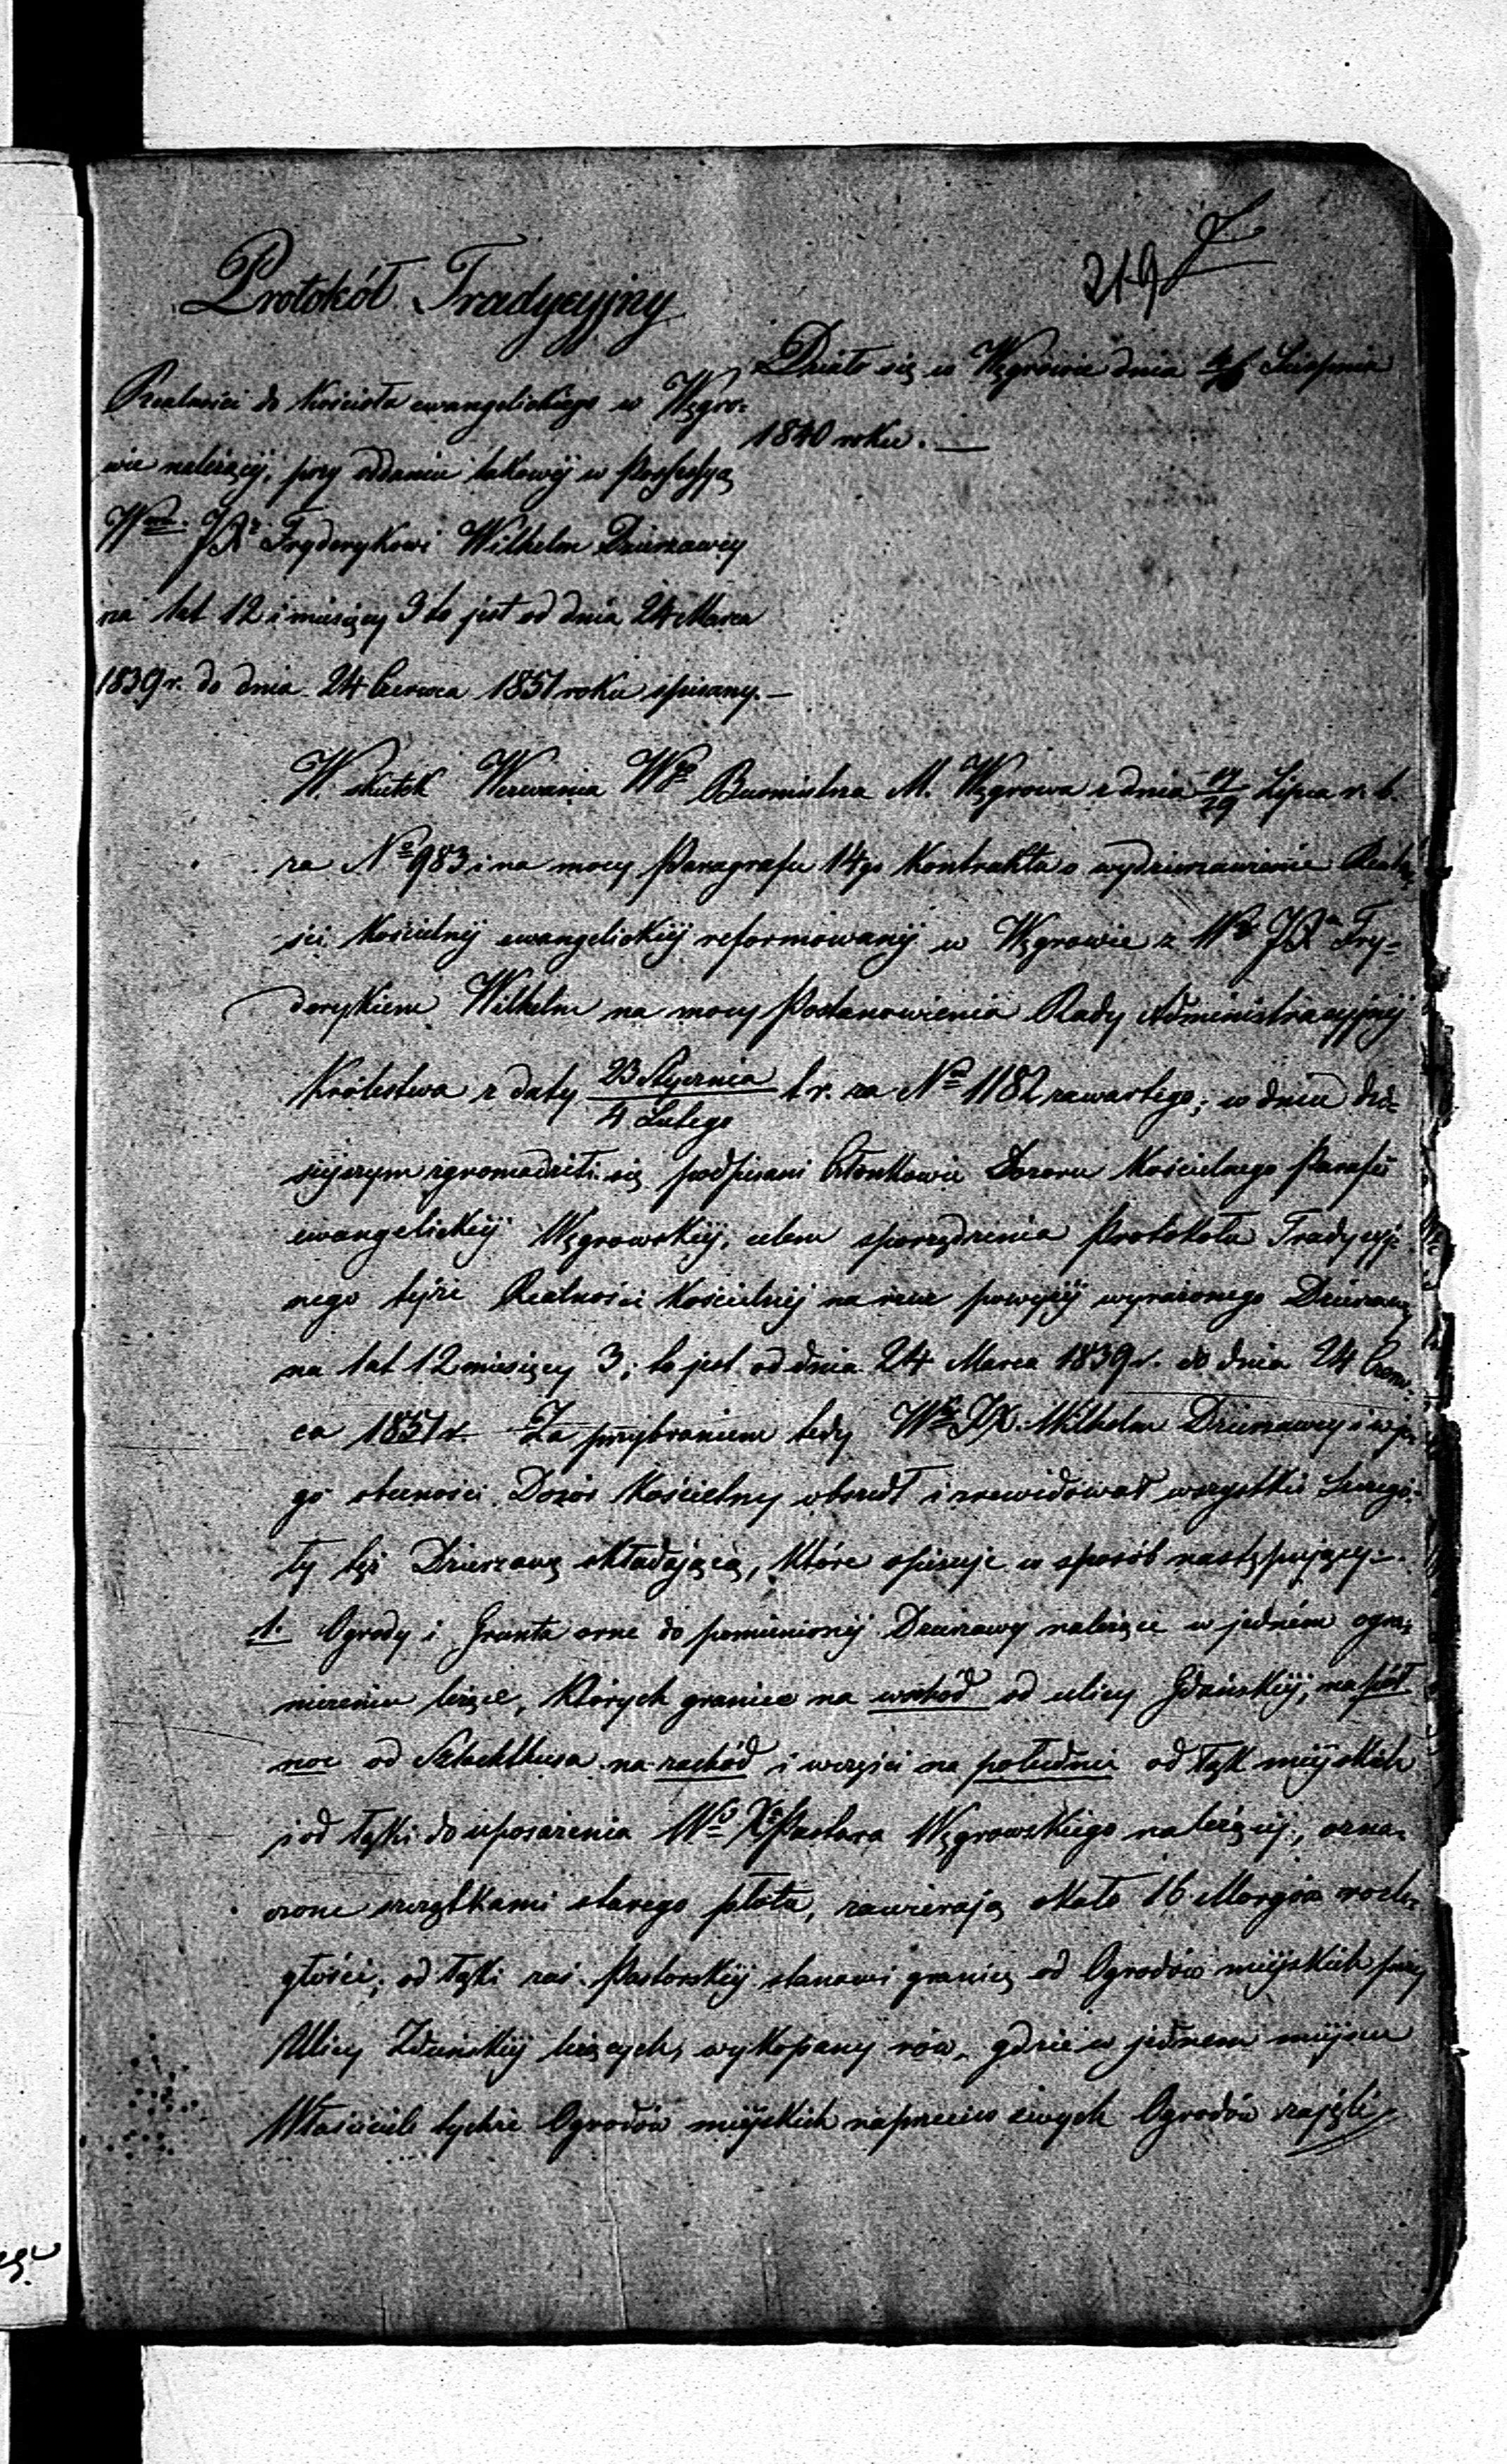 219
Protokół Tradycyjny
Działo się w Węgrowie dnia Sierpnia
1840 roku. —
Realności do Kościoła ewangelickiego w Węgro-
wie należącéj, przy oddaniu takowéj w Possessyą
Wmu. JX Fryderykowi Wilhelm Dzierzawcy
na lat 12 i miesięcy 3 to jest od dnia 24 Marca
1839 r. do dnia 24 Czerwca 1851 roku spisany. —
W skutek Wezwania Wgo Burmistrza M. Węgrowa z dnia 17/29 Lipca r. b.
za No 983 i na mocy Paragrafu 14go Kontraktu o wydzierzawienie Realno-
ści Kościelnéj ewangelickiéj reformowanéj w Węgrowie z JX Fry-
derykiem Wilhelm na mocy Postanowienia Rady Administracyjnéj
Królestwa z daty 23 Stycznia / 4 Lutego b r. za No 1182 zawartego; w dniu dzi-
siejszym zgromadzili się podpisani Członkowie Dozoru Kościelnego Parafii
ewangelickiéj Węgrowskiéj, celem sporządzenia Protokołu Tradycyj-
nego téjże Realności Kościelnéj na rzecz powyżéj wyrażonego Dzierzawcy
na lat 12 miesięcy 3; to jest od dnia 24 Marca 1839 r. do dnia 24 Czerw-
ca 1851 r. Za przybraniem tedy JX. Wilhelm Dzierzawcy i w je-
go obecności Dozór Kościelny obszedł i zrewidował wszystkie Szczegó-
ły téj Dzierzawę składającą, które opisuje w sposób następujący:
1. Ogrody i Grunta orne do pomienionéj Dzierzawy należące w jedném ogra-
niczeniu leżące, których granice na wschód od ulicy Gdańskiéj, na pół-
noc od Szlachthusa na zachód i wczęści na południe od łąk miejskich
i od łąki do uposażenia Wo Xa Pastora Węgrowskiego należącéj, ozna-
czone szczątkami starego płota, zawierają około 16 Morgów rozle-
głości; od łąki zaś Pastorskiéj stanowi granicę od Ogrodów miejskich przy
Ulicy Zduńskiéj leżących, wykopany rów, gdzie w jednem miejscu
Właściciele tychże Ogrodów miejskich naprzeciw swych Ogrodów zajęli